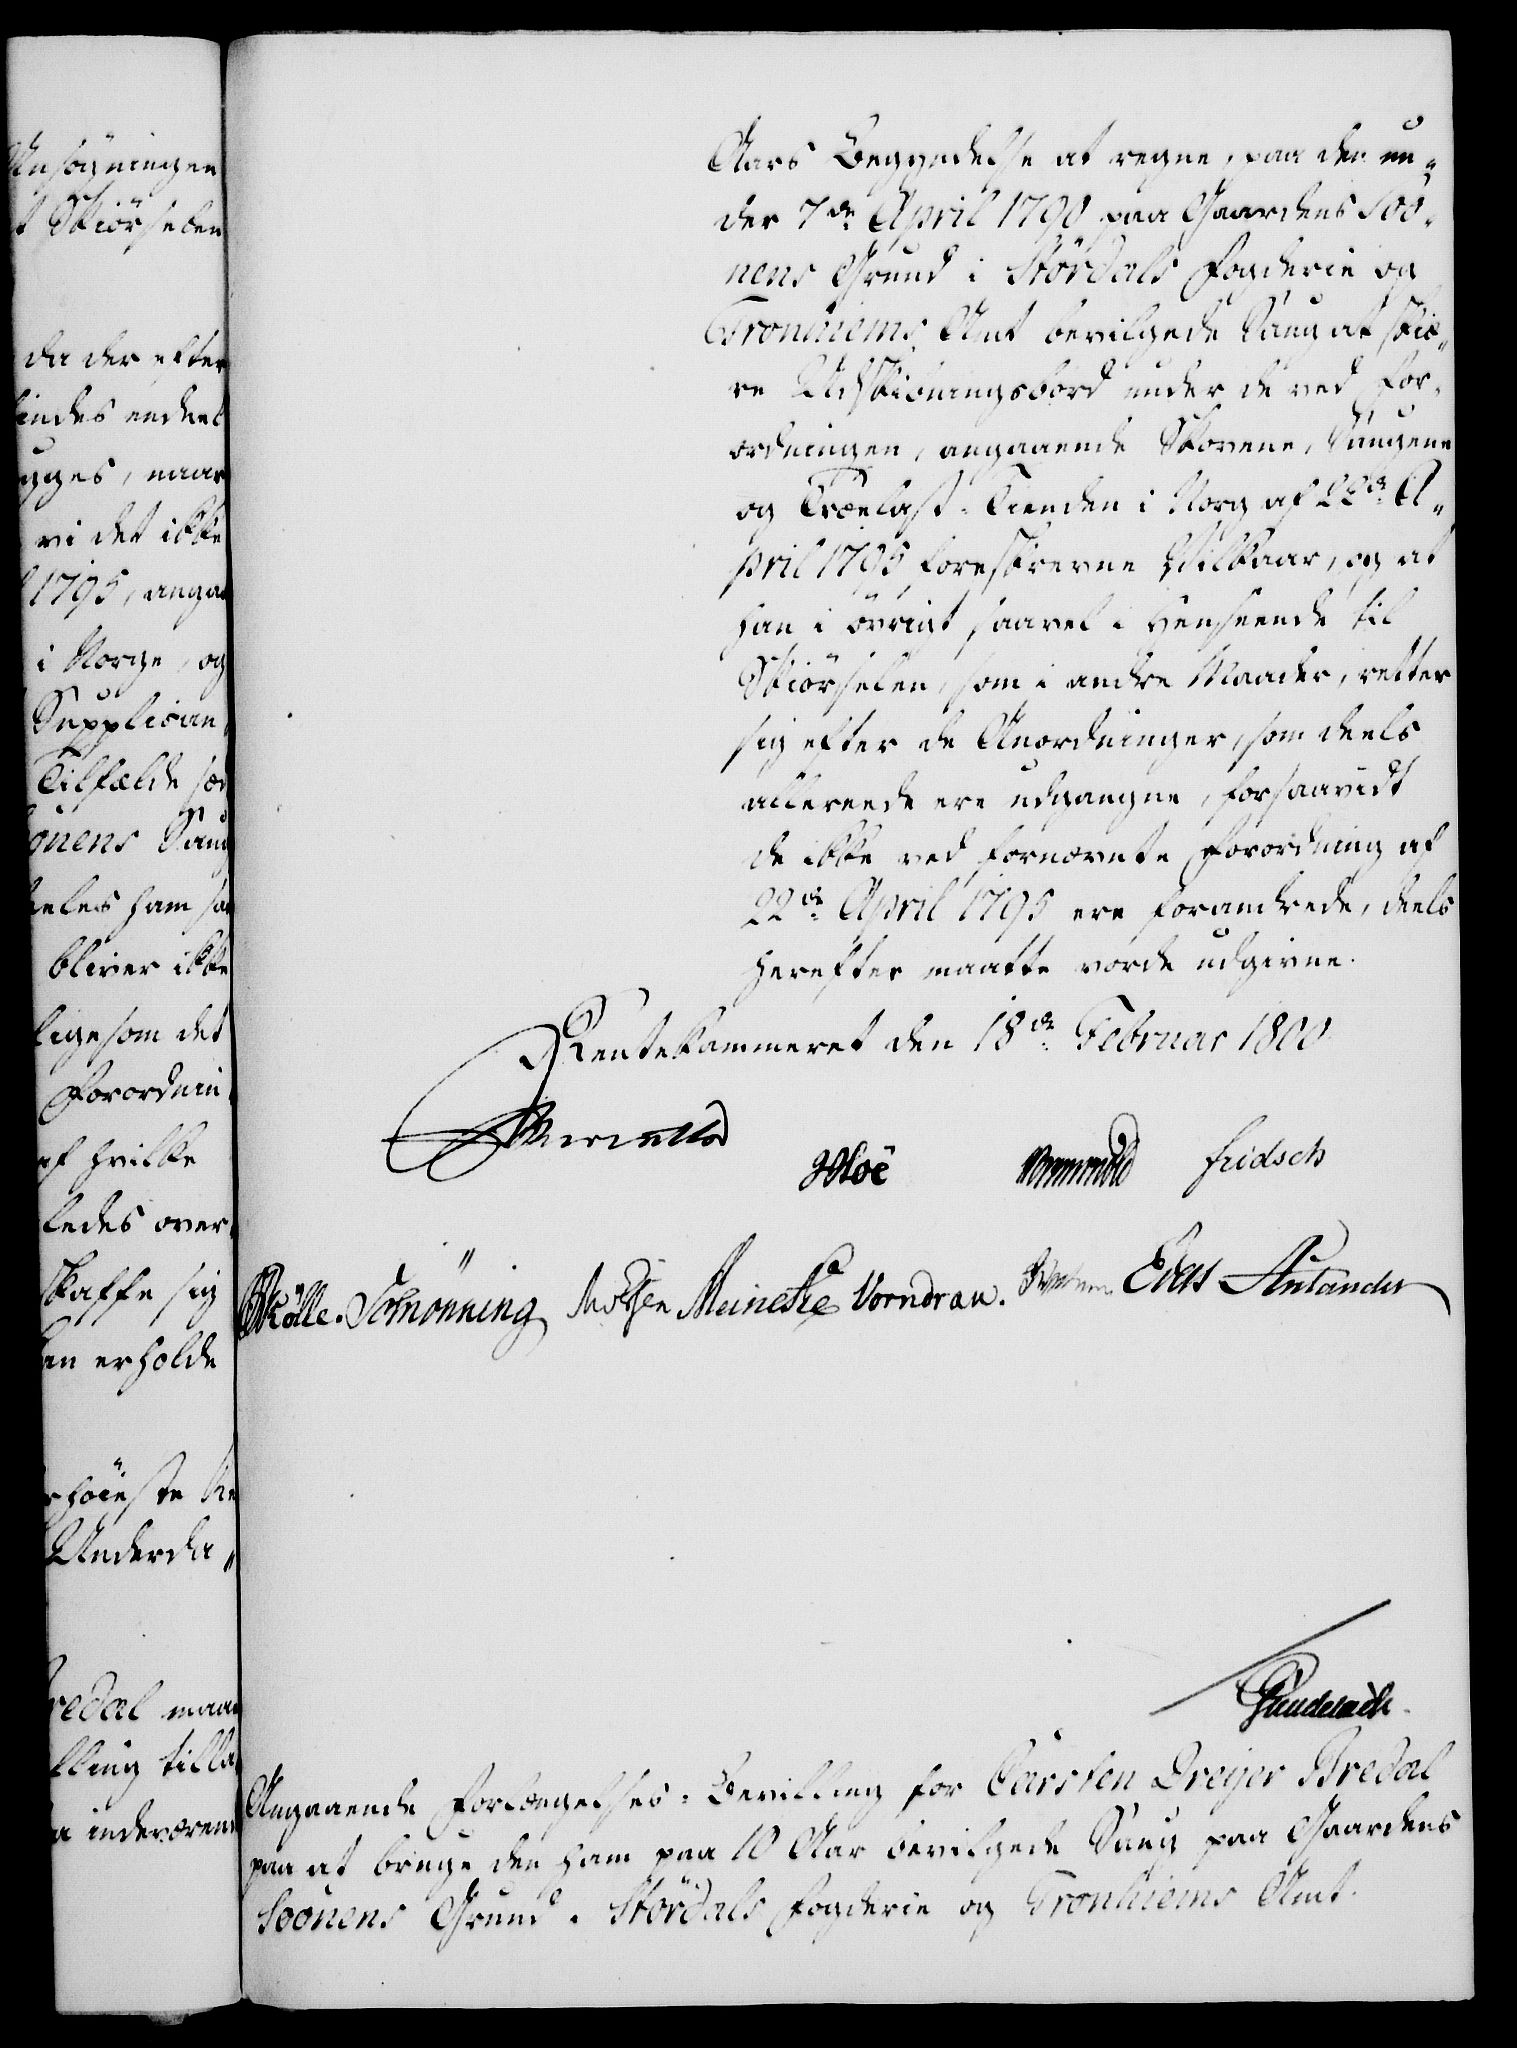 Ansøgningen
t Skiørselen
da der efter
findes endeel
ygges, naar
vi det ikke
1795, angaa
i Norge, og
Supplican,
Tilfælde sær
onens Saug
deles ham saa
bliver ikke
ligesom det
Forordnin,
af hvilke
ledes over,
skaffe sig
en erholde
rhøieste Re
Underda„
redal maa
lling tilla,
a indeværen
Aars Begyndelse at regne, paa den un„
der 7de April 1790 paa Gaardens Soo„
nens Grund i Størdals Fogderie og
Tronhiems Amt bevilgede Saug at skiæ„
re Udskibningsbord under de ved For„
ordningen, angaaende Skovene, Saugene
og Trælast-Tienden i Norg af 22de A„
pril 1795 foreskrevne Vilkaar, og at
han i øvrigt saavel i Henseende til
Skiørselen, som i andre Maader, retter
sig efter de Anordninger, som deels
allereede ere udgangne, forsaavidt
de ikke ved fornævnte Forordning af
22de April 1795 ere forandrede, deels
herefter maatte vorde udgivne.
Rentekammeret den 18de Februar 1800
Hoë Wormskiold Fridsch
Kølle. Schiønning Möller Meincke Vorndran. Evers Aulander
Gundelach.
Angaaende Forlængelses-Bevilling for Carsten Dreyer Bredal
paa at bruge den ham paa 10 Aar bevilgede Saug paa Gaardens
Soonens Grund i Størdals Fogderie og Tronhiems Amt.